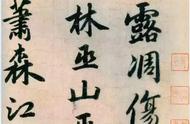 露凋傷
林巫山
蕭森江